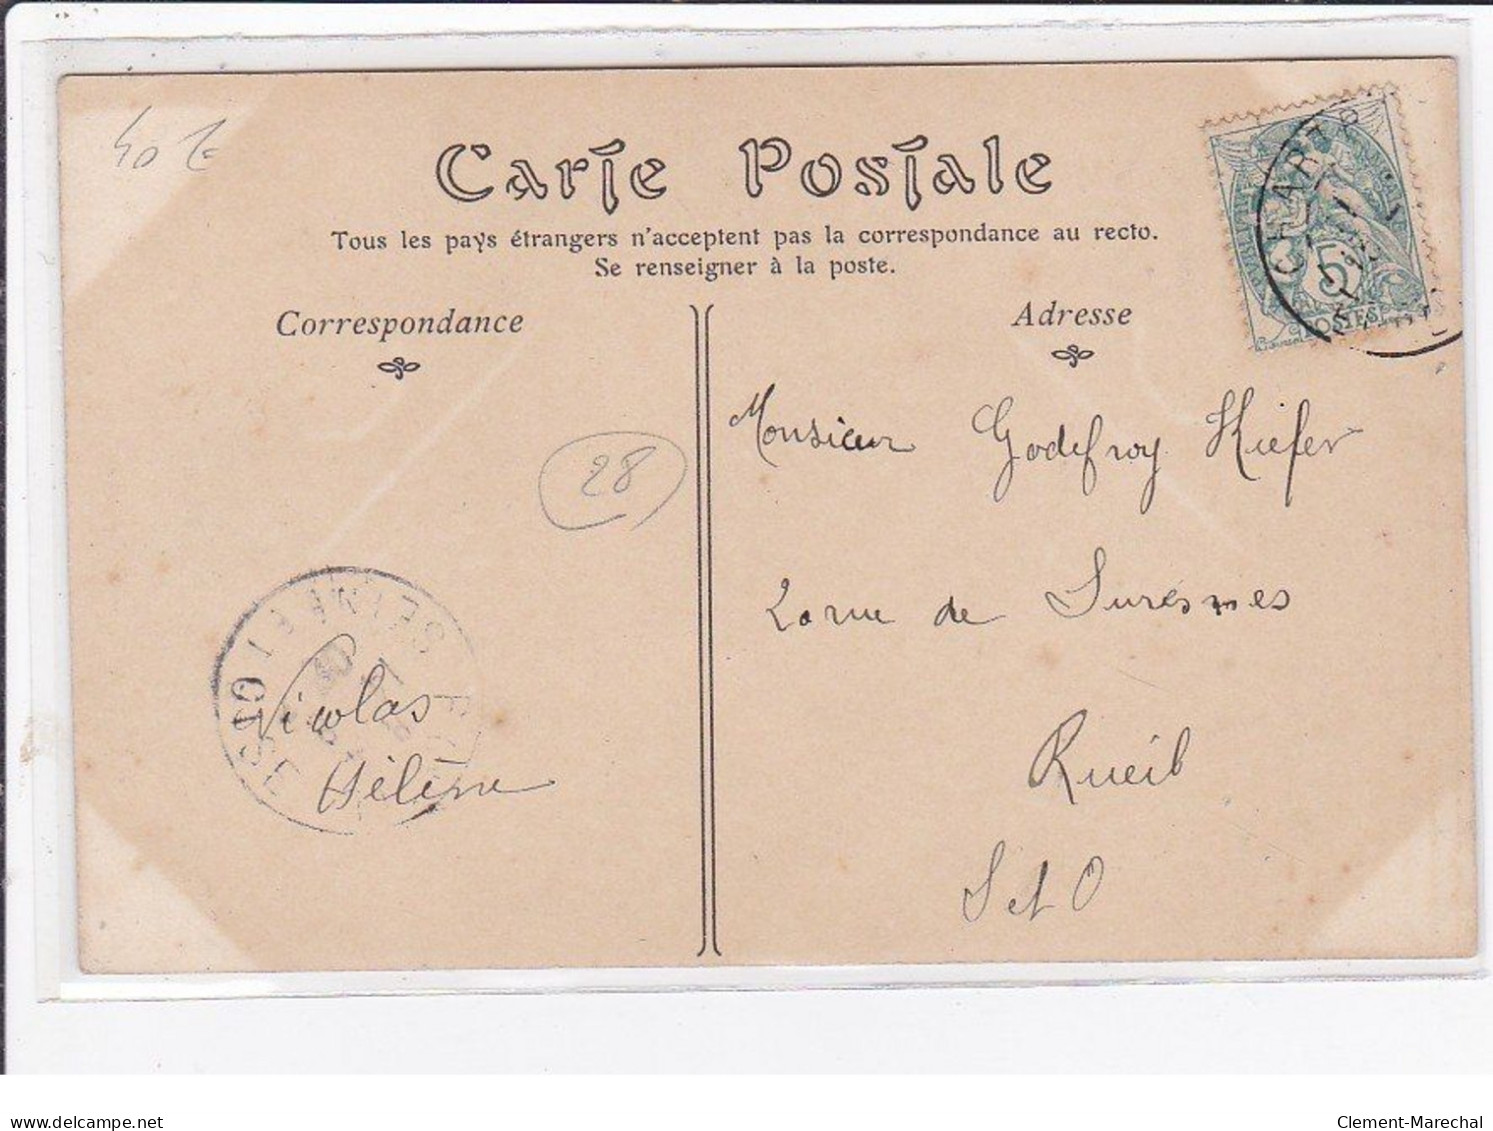 40 E
Carte Postale
Tous les pays étrangers n'acceptent pas la correspondance au recto.
Se renseigner à la poste.
Correspondance
Adresse
CHARTR
5
POSTES
Monsieur Godefroy Kiefer
28
2 o rue de Suresnes
SEINE ET OISE
Nicolas
Hélène
Rueil
S et O
www.delcampe.net
Clement-Marechal